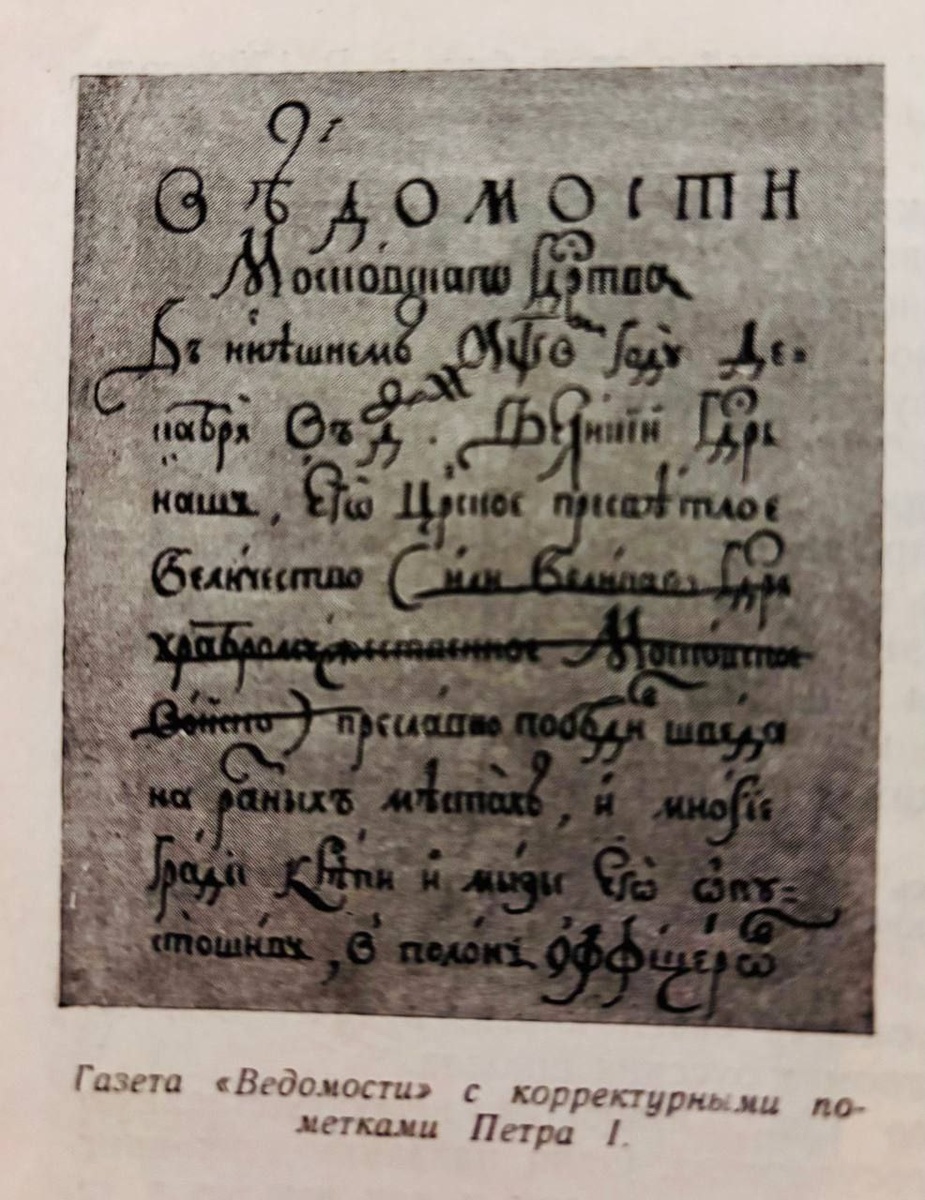 ВѢДОМОСТИ
Московскаго Црства
Въ нн҃ѣшнемъ году Де=
кабря въ д҃. Дѣяний Гдрь
нашъ, Егѡ Црское пресвѣтлое
Величество (или Великаго Гдря
храбромужественное Московское
Войско) преславно побѣди шведа
на разныхъ мѣстахъ, и многїе
грады и Егѡ ѡпу=
стошивъ, в полонъ ѡффицерѡв
Газета «Ведомости» с корректурными по-
метками Петра I.